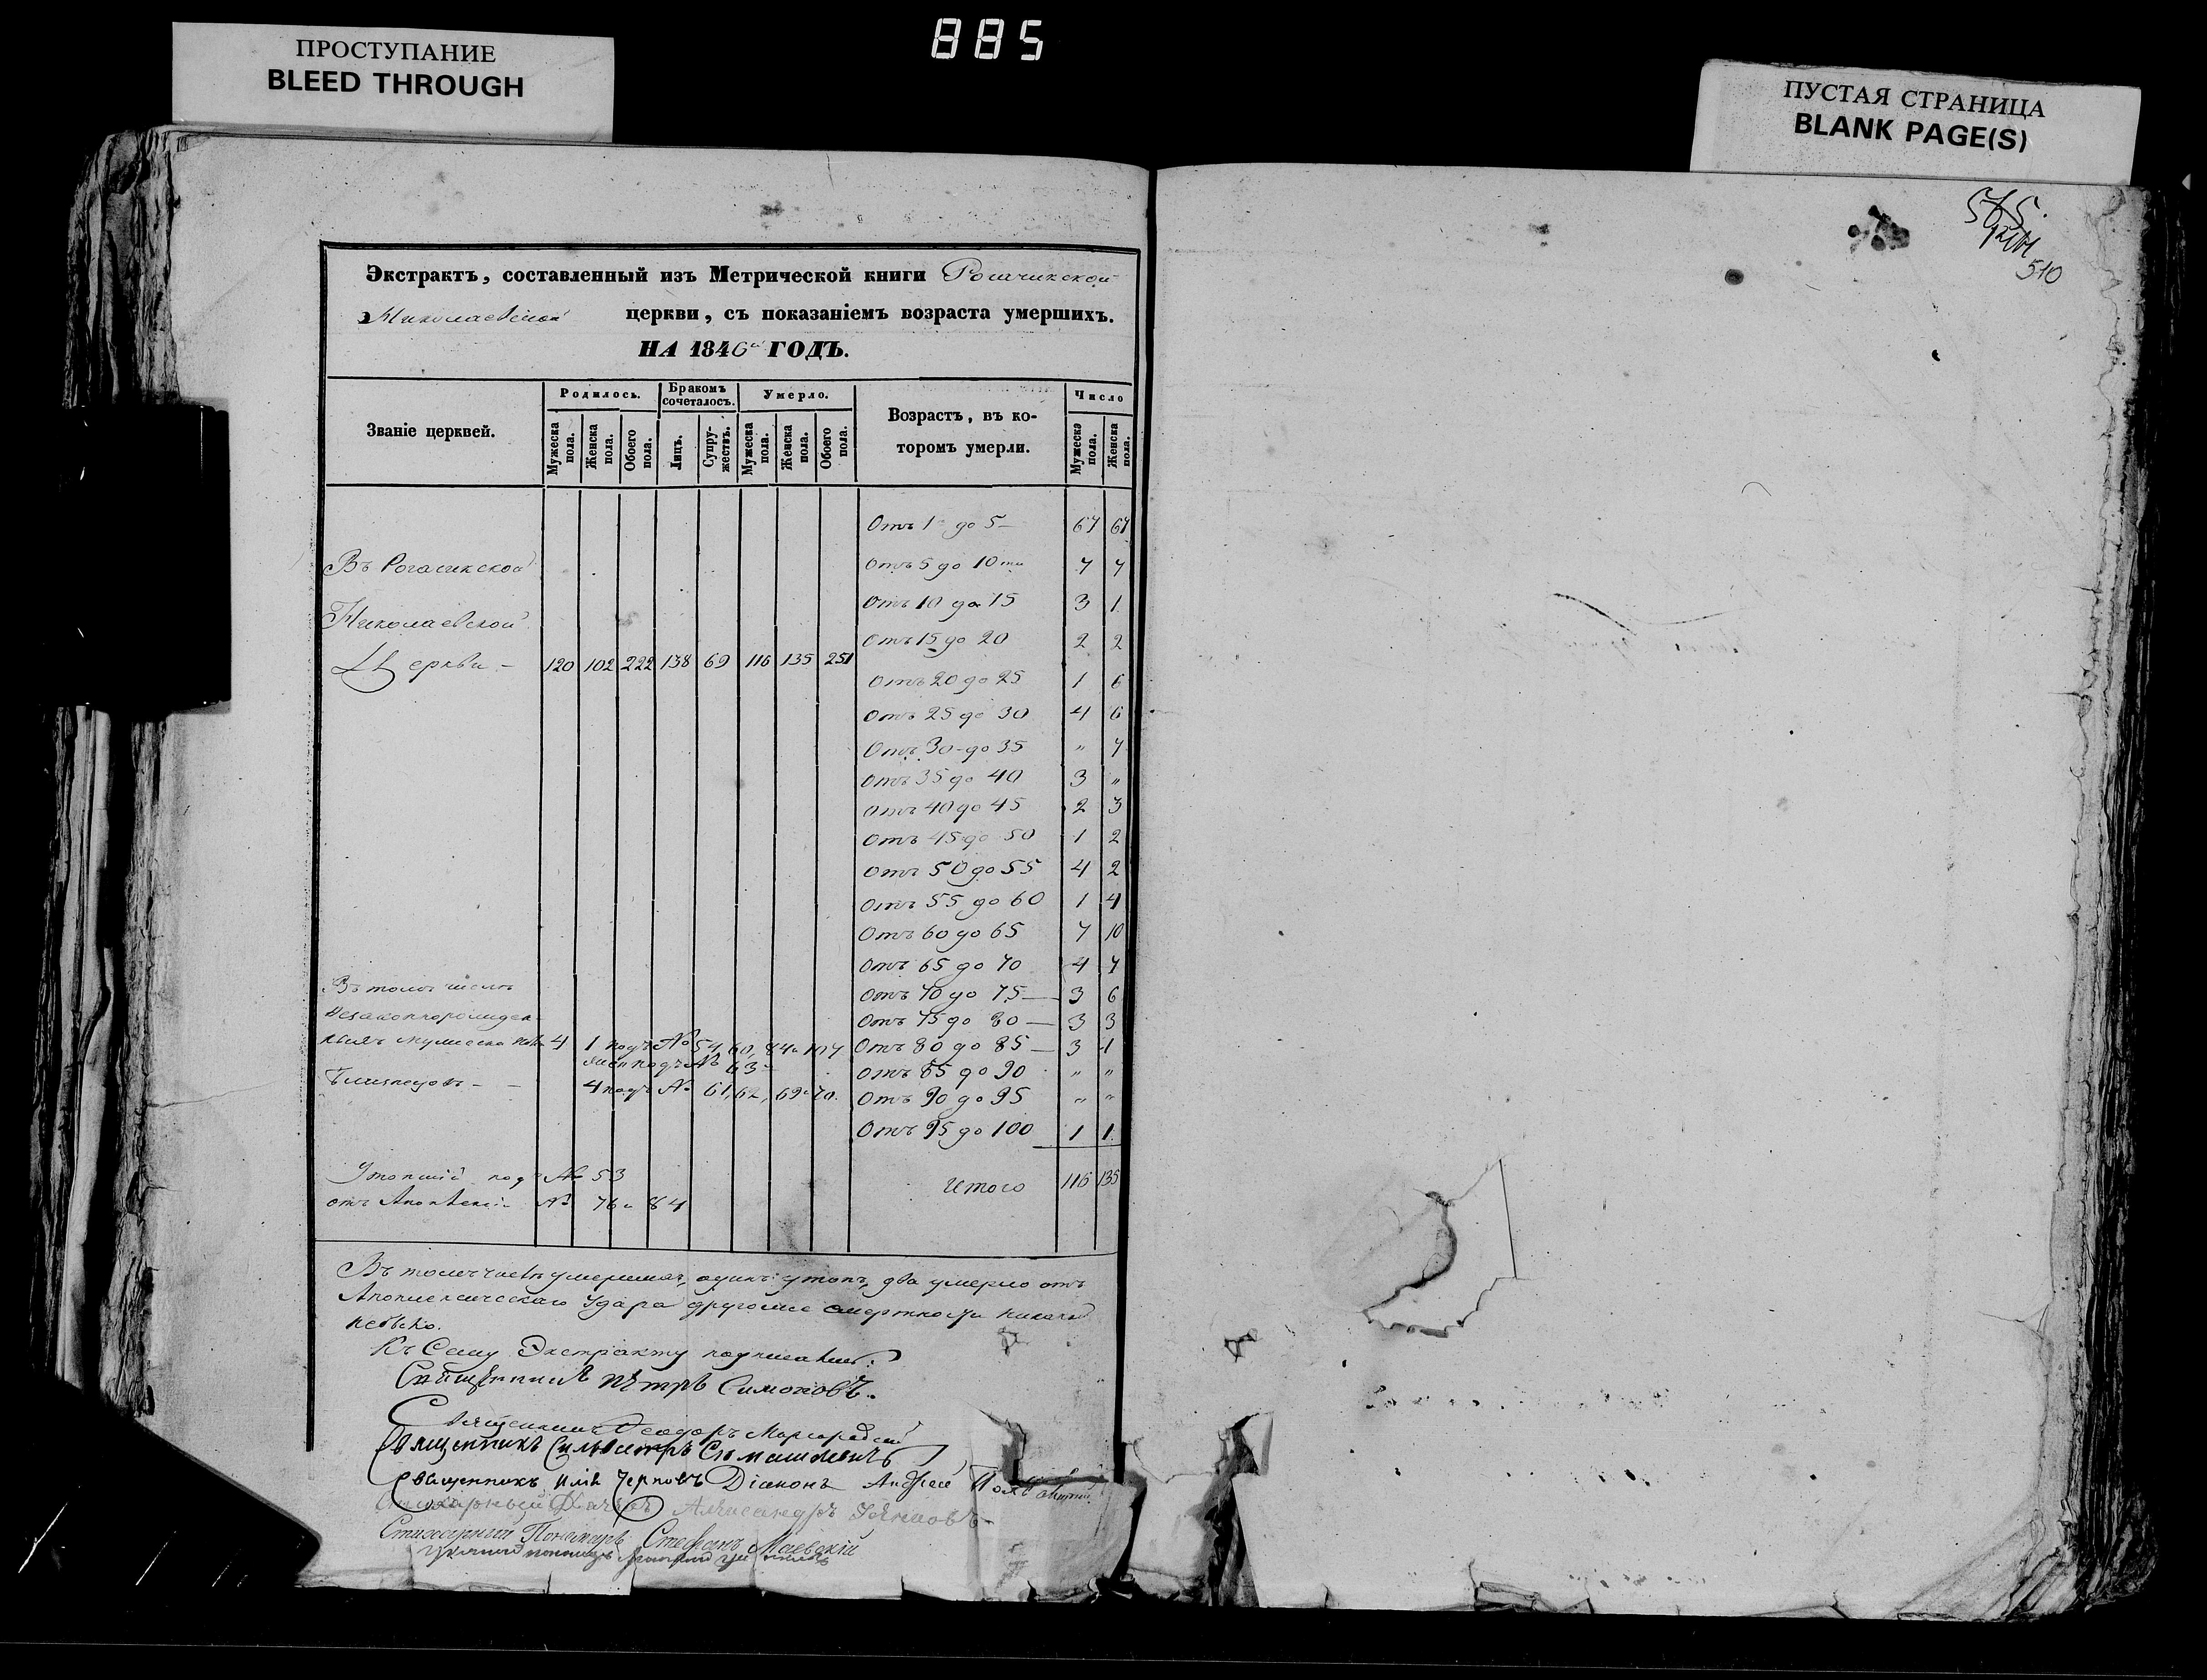 885
ПРОСТУПАНИЕ
BLEED THROUGH
ПУСТАЯ СТРАНИЦА
BLANK PAGE(S)
565.
510
Экстрактъ, составленный изъ Метрической книги Рогачикской
Николаевской церкви, съ показаніемъ возраста умершихъ.
НА 1846й ГОДЪ.
Званіе церквей.
Родилось.
Бракомъ сочеталось.
Умерло.
Возрастъ, въ которомъ умерли.
Число
Мужеска пола.
Женска пола.
Обоего пола.
Лицъ.
Супружествъ.
Мужеска пола.
Женска пола.
Обоего пола.
Мужеска пола.
Женска пола.
Отъ 1 до 5 67 67
Въ Рогачикской
Отъ 5 до 10ти 7 7
Отъ 10 до 15 3 1
Николаевской
Отъ 15 до 20 2 2
Церкви - 120 102 222 138 69 116 135 251
Отъ 20 до 25 1 6
Отъ 25 до 30 4 6
Отъ 30 до 35 „ 7
Отъ 35 до 40 3 „
Отъ 40 до 45 2 3
Отъ 45 до 50 1 2
Отъ 50 до 55 4 2
Отъ 55 до 60 1 4
Отъ 60 до 65 7 10
Отъ 65 до 70 4 7
Въ томъ числѣ
Отъ 70 до 75 — 3 6
незаконнорожден-
Отъ 75 до 80 — 3 3
ныхъ мужеска пола 4 1 подъ № 54, 60, 84 и 107
Отъ 80 до 85 — 3 1
жен подъ № 63
Отъ 85 до 90 „ „
Близнецовъ - - 4 подъ № 61, 62, 69 и 70.
Отъ 90 до 95 „ „
Отъ 95 до 100 1 1
Утопшій подъ № 53
Итого 116 135
отъ № 76 и 84
Въ томъ числѣ умершихъ, одинъ утопъ, два умерло отъ
Апоплексическаго Удара другой же смертности никакой
небыло.
Къ Сему Экстракту подписались:
Священникъ Пѣтръ Симоновъ.
Священникъ Феодоръ
Священникъ Сильвестръ
Священникъ Илія Черповъ Діаконъ Андрей
Стихарный Дячекъ Александръ
Стихарный Пономарь Стефанъ Маевскій